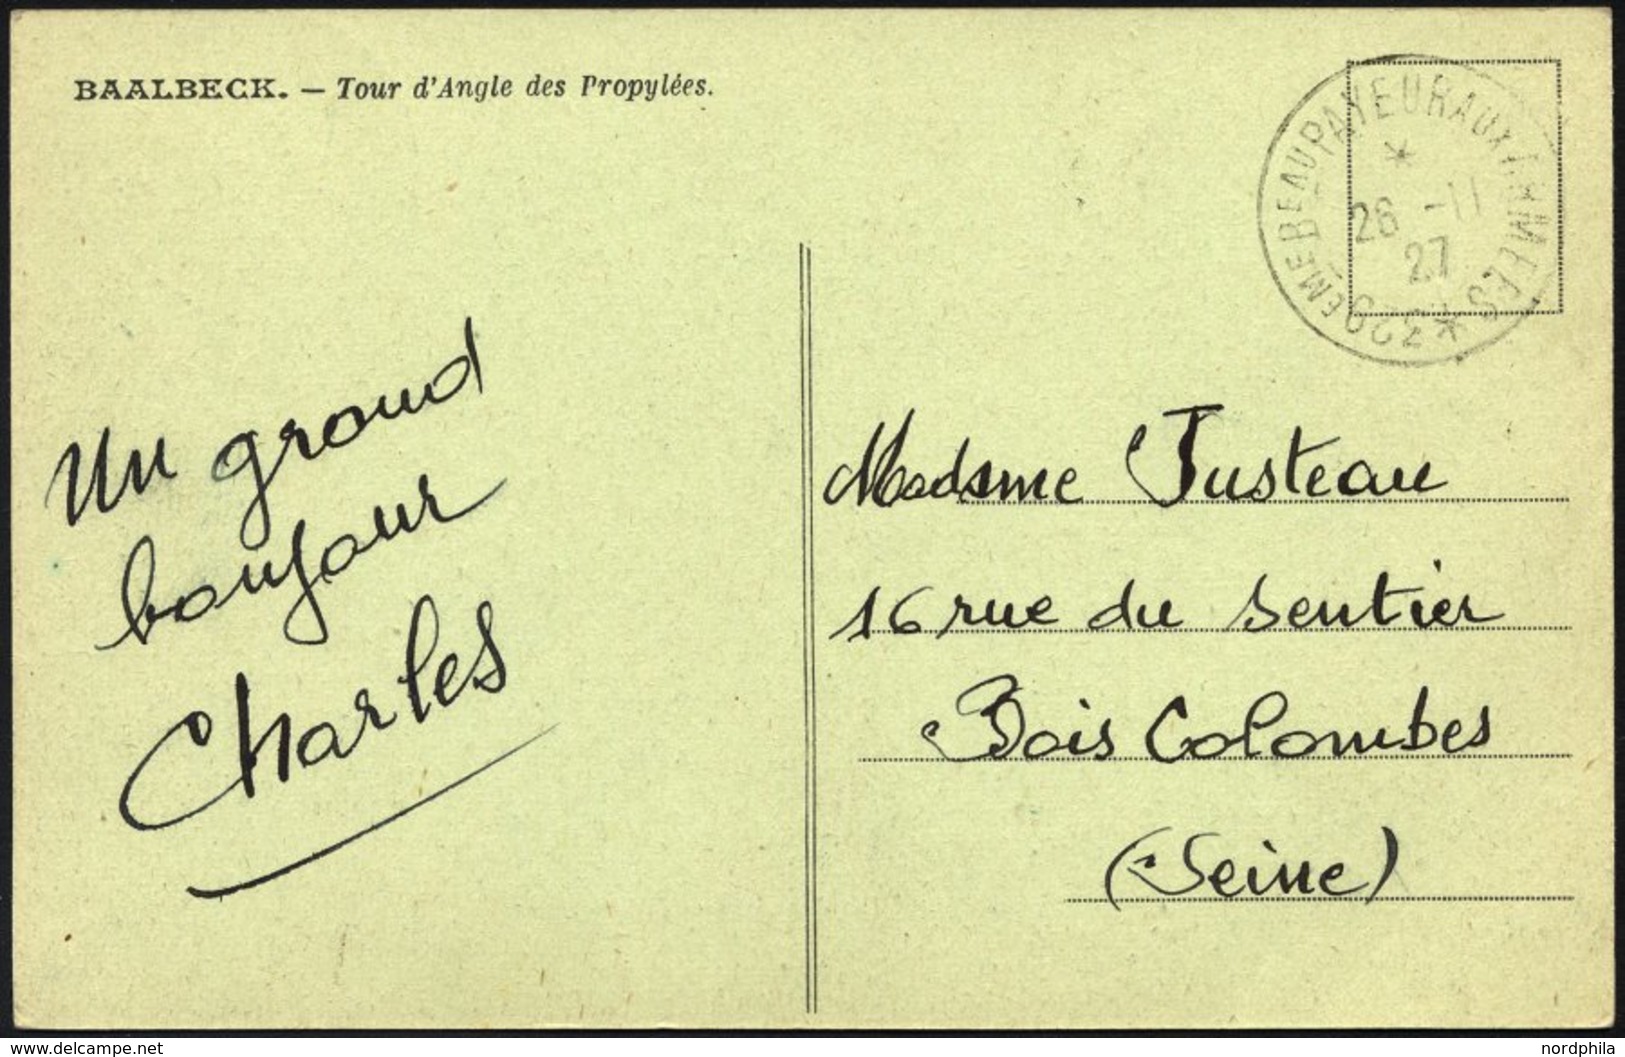 BAALBECK. — Tour d'Angle des Propylées.
PAYEUR AUX ARMEES
26 -11
27
Un grand
bonjour
Charles
Madame Justeau
16 rue du Sentier
Bois Colombes
(Seine)
www.delcampe.net
nordphila